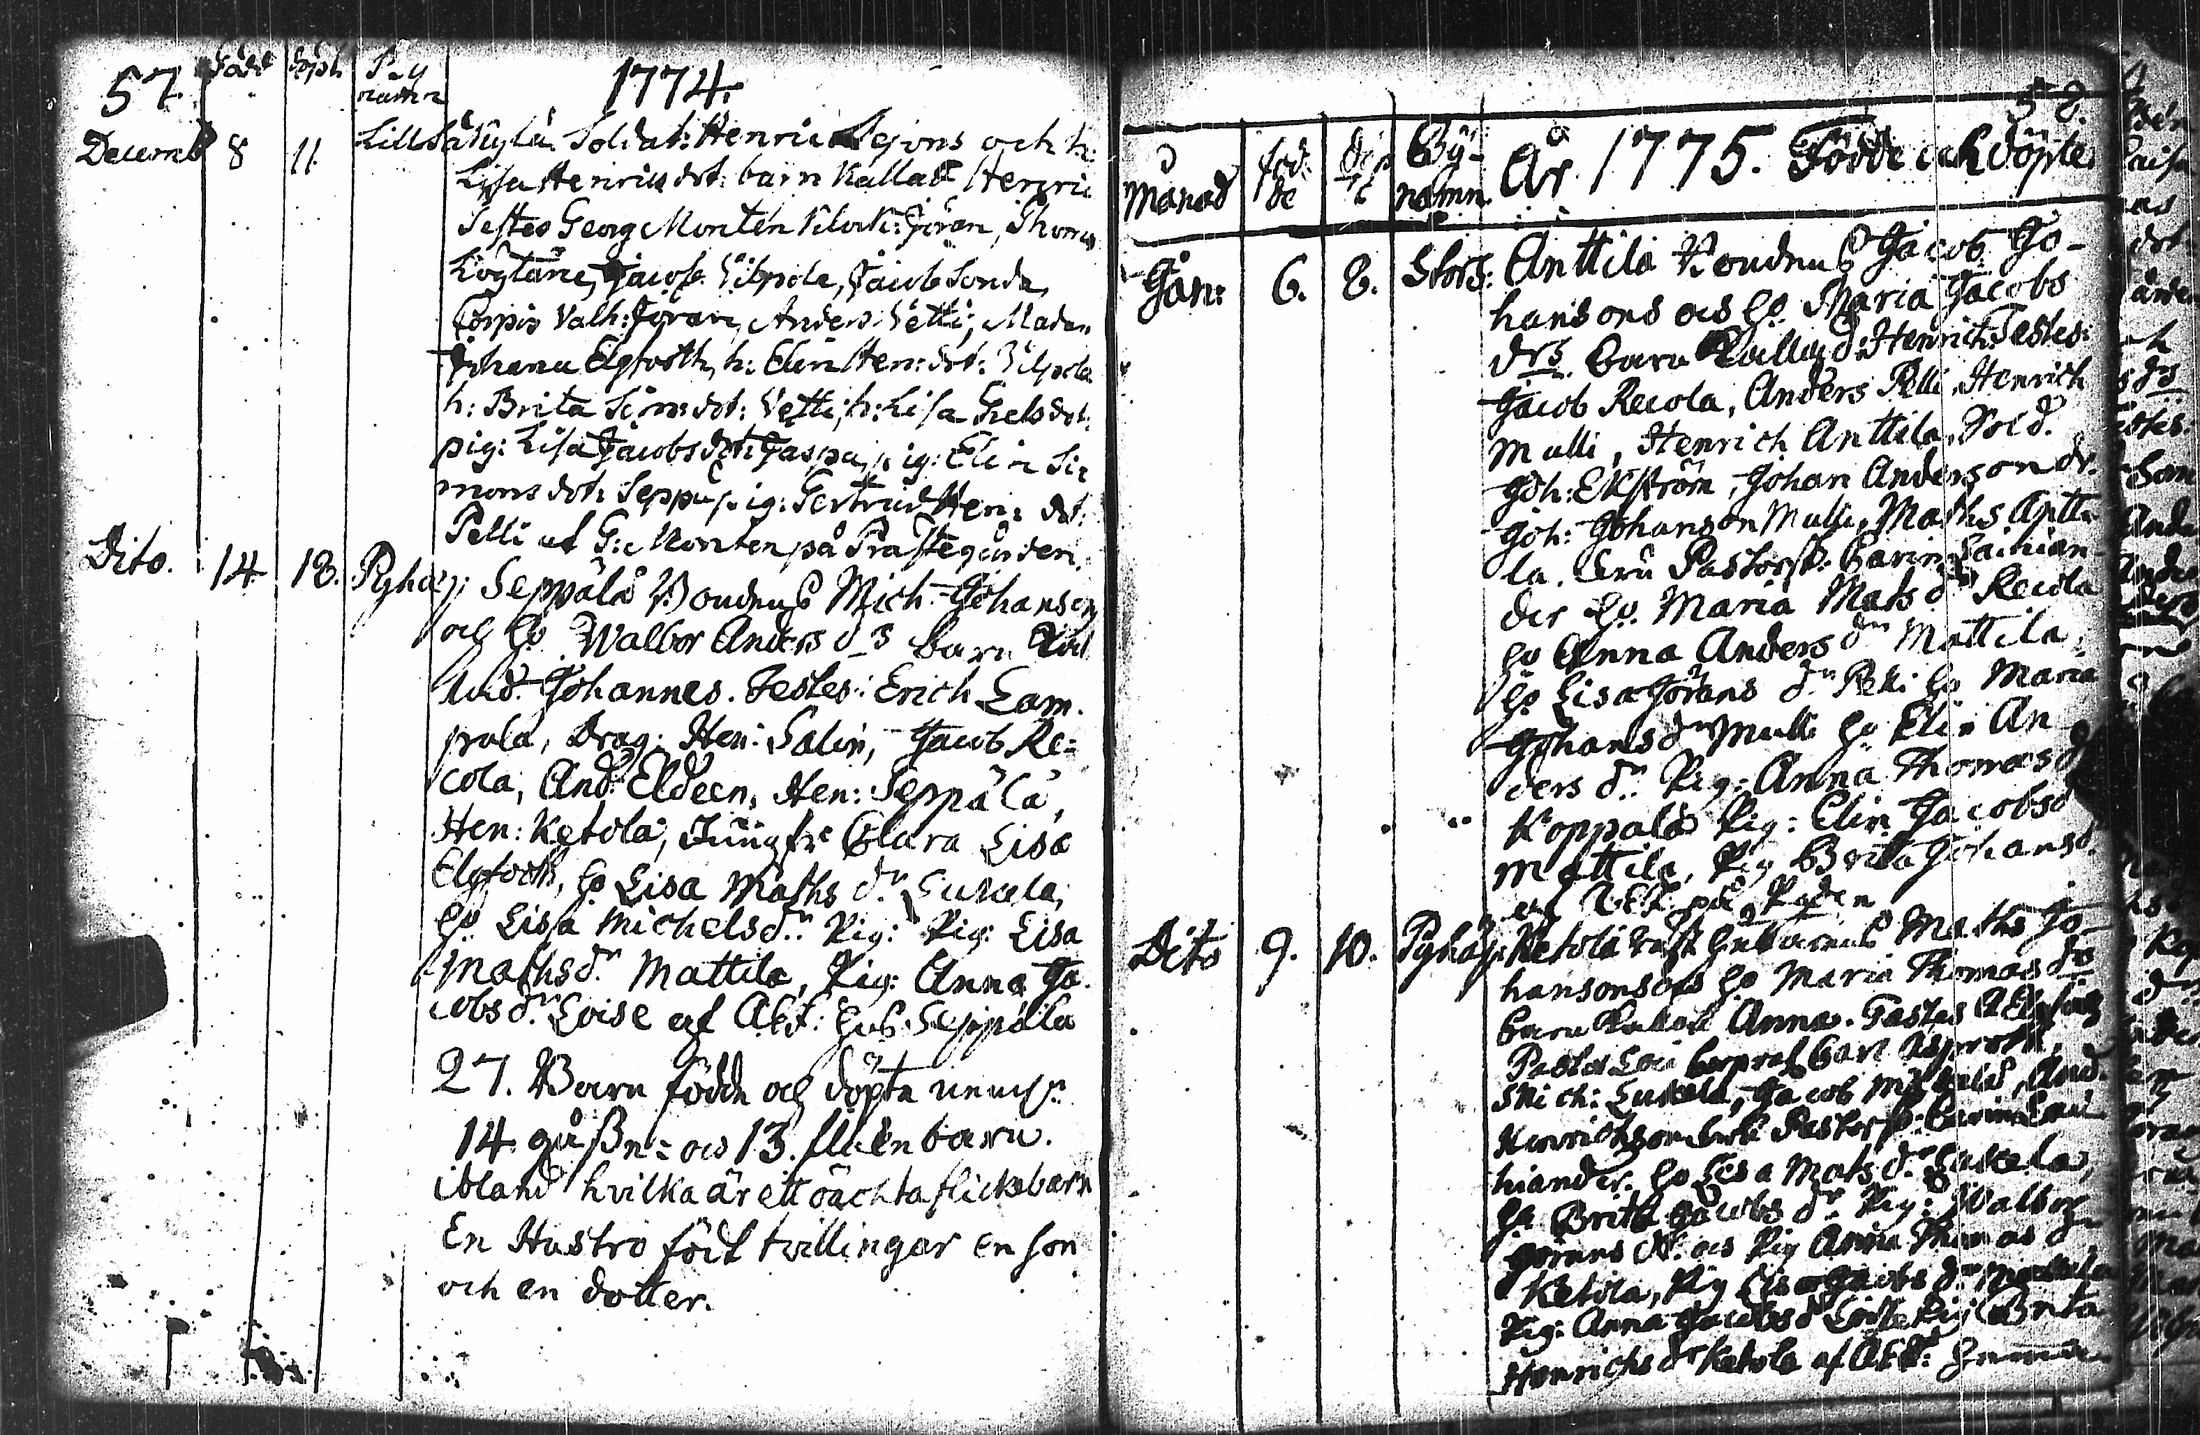 57. född döpt By
namn 1774.
Decemb 8 11. Lill Säkylä. Soldat: Henric Lejons och h:
Lisa Henrics dot: barn Kallat Henric
Testes Georg Montén Klock: Jöran, Thomas
Jacob Vilpola, Jacob
Valh: Jöran, Anders Vetti, Madam
Johana Elgfooth, h: Elin Hen: dot: Vilpola
h: Brita Sim: dot: Vetti, h: Lisa dot:
pig: Lisa Jacobs dot: Jaspa, pig: Elin Si
mons dot: Seppä pig: Gertrud Hen: dot:
Pelli af G: Monten på Prästegården.
Dito. 14 18. Pyhäj: Seppälä Bondens Mich. Johanson
och h. Walbor Anders d s barn Kal
lad. Johannes. Testes: Erich Lam.
pola, Drag: Hen: Salin, Jacob Re=
cola, And: Eldeen, Hen: Seppälä,
Hen: Ketola, Jungfr Clara Lisa
Elgfooth, h Lisa Maths dr Lukala,
h. Lisa Michelsdr. Pig: Pig: Lisa
Mathsdr Mattila, Pig: Anna Ja.
cobsdr Loise af Seppälä
27. Barn födde och döpte
14 gåßn= och 13. flickbarn.
ibland hvilka är ett oächta flickebarn
En Hustro födt tvillingar en son
och en dotter.
58.
Månad föd:
de döp
t By-
namn. År 1775. Födde och döpte
Jan: 6. 8. Stors: Anttila Bondens Jacob Jo-
hansons och h. Maria Jacobs
drs. barn Kallad: Henrich Testes:
Jacob Recola, Anders Pelli, Henrich
Mulli, Henrich Anttila, Sold.
Joh: Ekström, Johan Anderson
Joh: Johanson Mulli, Maths Antti
la. Fru Pastorsk: Carin Laihian
der h. Maria Mats dr Recola
h Anna Anders dr Mattila,
h. Lisa Jörans dr Pelli h Maria
Johans dr Mulli h Elin An
ders dr. Pig: Anna Thomas d
Koppala Pig: Elin Jacobsd
Mattila, Pig Brita Johansd.
på
Dito 9. 10. Pyhäj: Ketola Maths Jo-
hansons och h Maria Thomas drs
barn Kallad Anna. Testes
Carl
Mich: Lukala, Jacob And.
Henrichson Pastorsk: Carin Lai
hiander. h Lisa Mats dr Lukala,
h Brita Jacobs dr. Pig: Walbor
Jörans dr. och Pig Anna Thomas d
Ketola, Pig Jacobs dr
Pig: Anna Jacobsd Loise Pig: Brita
Henrichs dr Ketola af